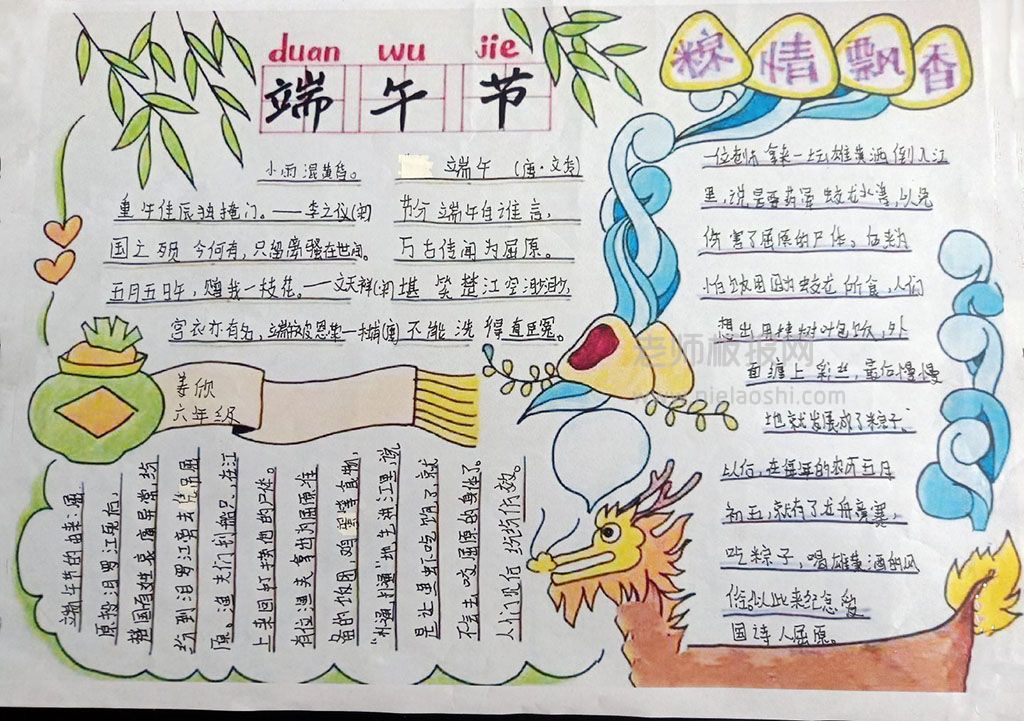 duan wu jie
端午节
粽情飘香
小雨湿黄昏。
重午佳辰独掩门。——李之仪(宋)
国之殇今何有,只留离骚在世间。
五月五日午,赠我一枝花。——文天祥(宋)
宫衣亦有名,端被恩荣一杜甫(唐)
端午 (唐·文秀)
节分端午自谁言,
万古传闻为屈原。
堪笑楚江空渺渺,
不能洗得直臣冤。
姜欣
六年级
端午节的由来:屈
原投汨罗江死后,
楚国百姓哀痛异常,纷
纷到汨罗江旁去凭吊屈
原。渔夫们划船只,在江
上来回打捞他的尸体。
有位渔夫拿出为屈原准
备的饭团,鸡蛋等食物,
“扑通扑通”地丢进江里,说
是让鱼虾吃饱了,就
不会去咬屈原的身体了。
人们见后纷纷仿效。
一位老医拿来一坛雄黄酒倒入江
里,说是要药晕蛟龙水兽,以免
伤害了屈原的尸体。后来为
怕饭团为蛟龙所食,人们
想出用楝树叶包饭,外
面缠上彩丝,最后慢慢
地就发展成了粽子。
以后,在每年的农历五月
初五,就有了龙舟竞赛,
吃粽子,喝雄黄酒的风
俗,以此来纪念爱
国诗人屈原。
老师板报网
www.pielaoshi.com